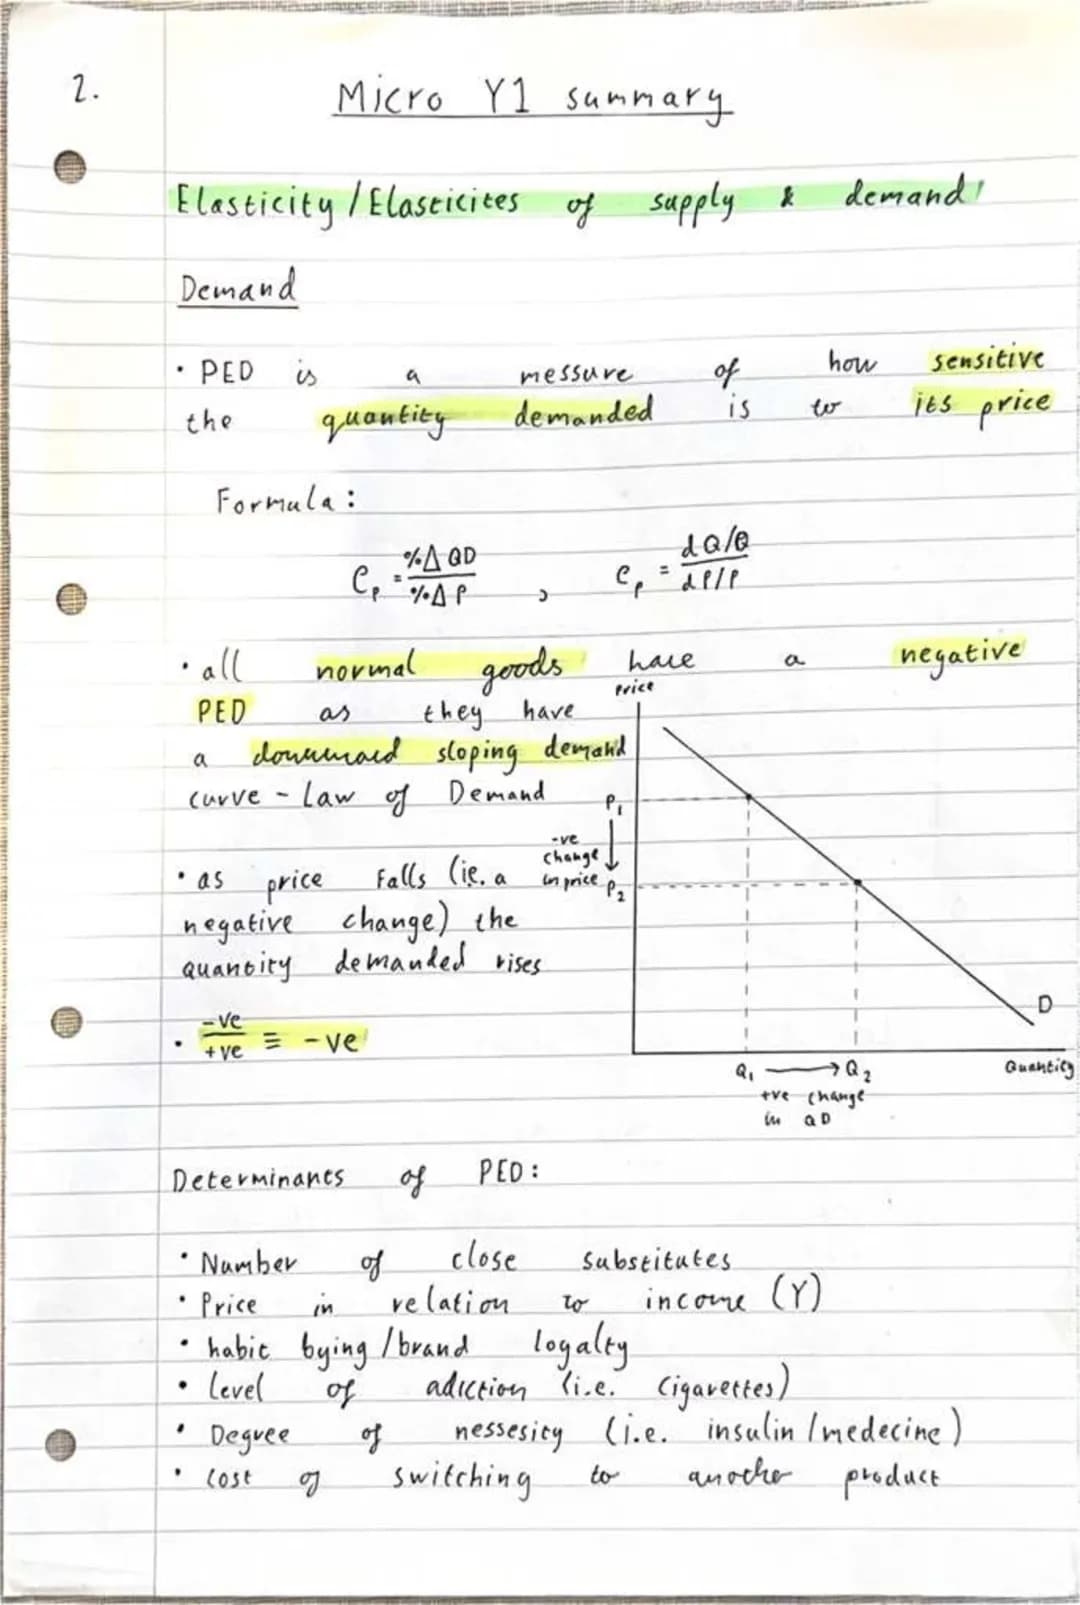 2.
Micro Y1 summary
Elasticity / Elasticites of supply & demand
Demand
• PED is a messure of how sensitive
the quantity demanded is to its price
Formula:
e_p = %Δ QD / %Δ P , e_p = dQ/Q / dP/P
• all normal goods have a negative
PED as they have
a downward sloping demand
curve - Law of Demand
• as price falls (ie. a
negative change) the
quantity demanded rises
• -ve / +ve ≡ -ve
Price
P₁
-ve
change
in price
P₂
D
Q₁ → Q₂
Quantity
+ve change
in QD
Determinants of PED:
• Number of close substitutes
• Price in relation to income (Y)
• habit bying / brand loyalty
• level of adiction (i.e. cigarettes)
• Degree of nessesity (i.e. insulin / medecine)
• cost of switching to another product